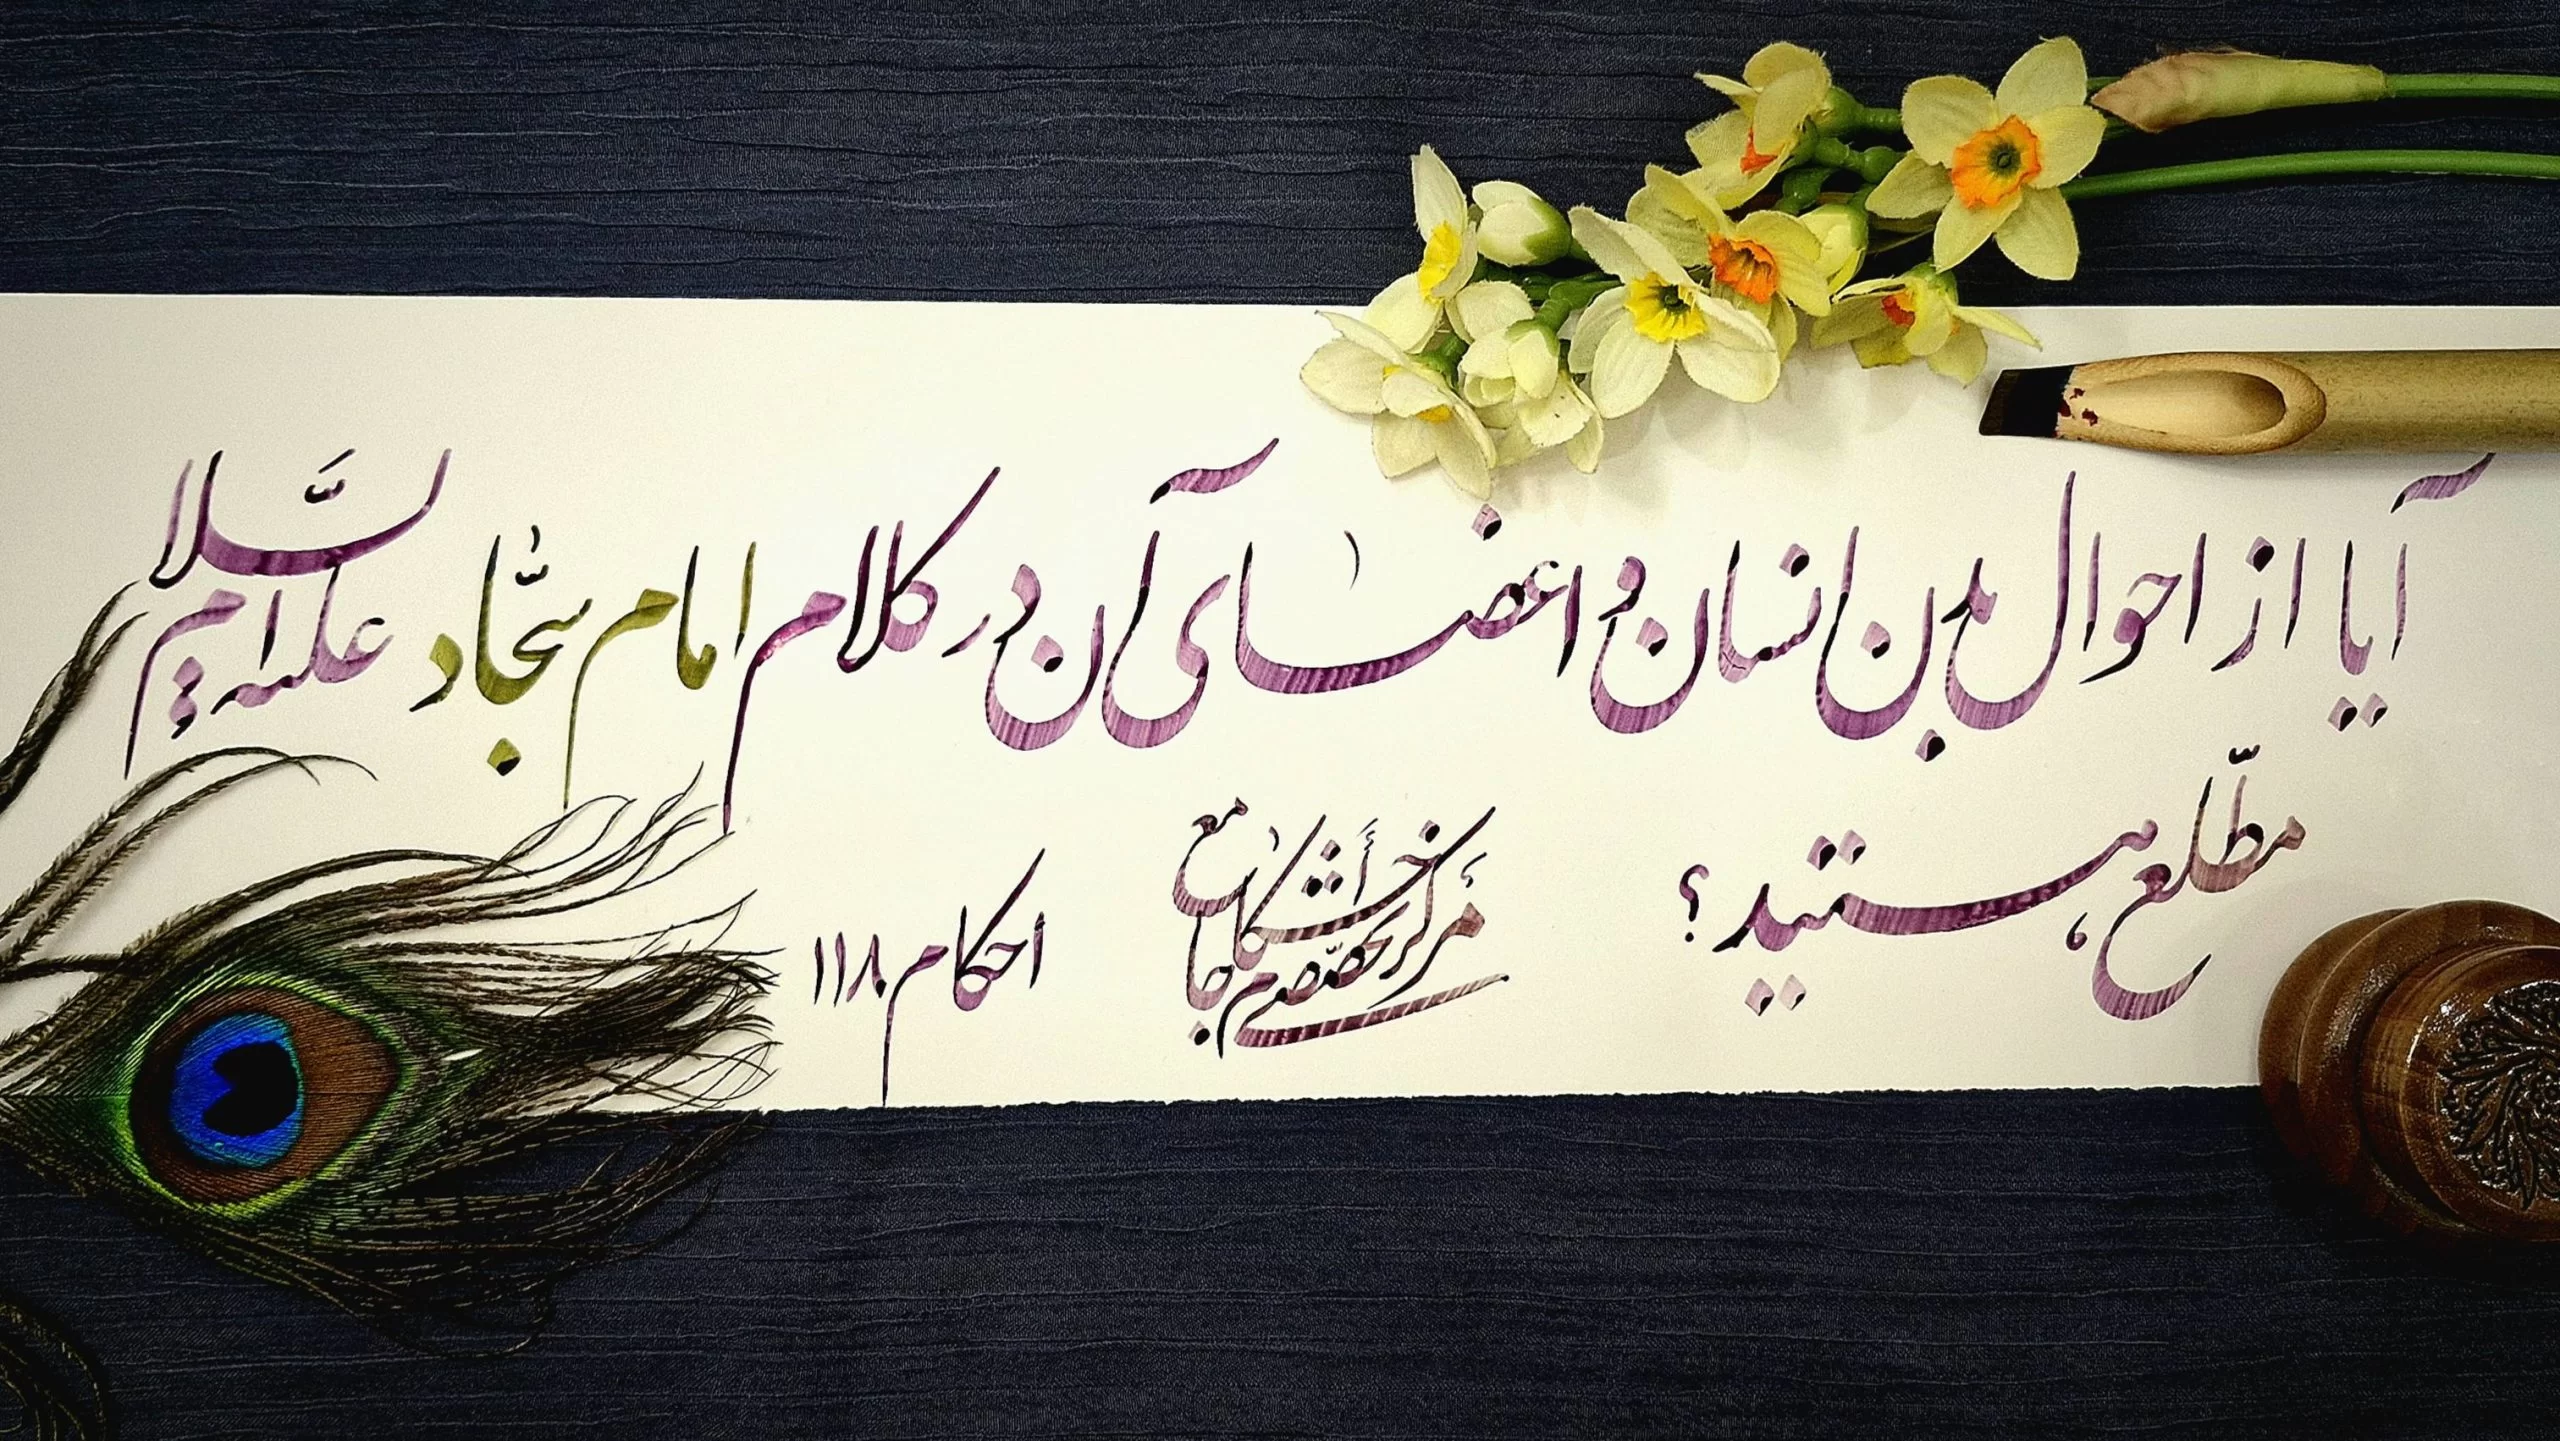 آیا از احوال بدن انسان و اعضای آن در کلام امام سجّاد علیه السّلام
مطلّع هستید؟
مرکز تخصّصی
احکام ۱۱۸